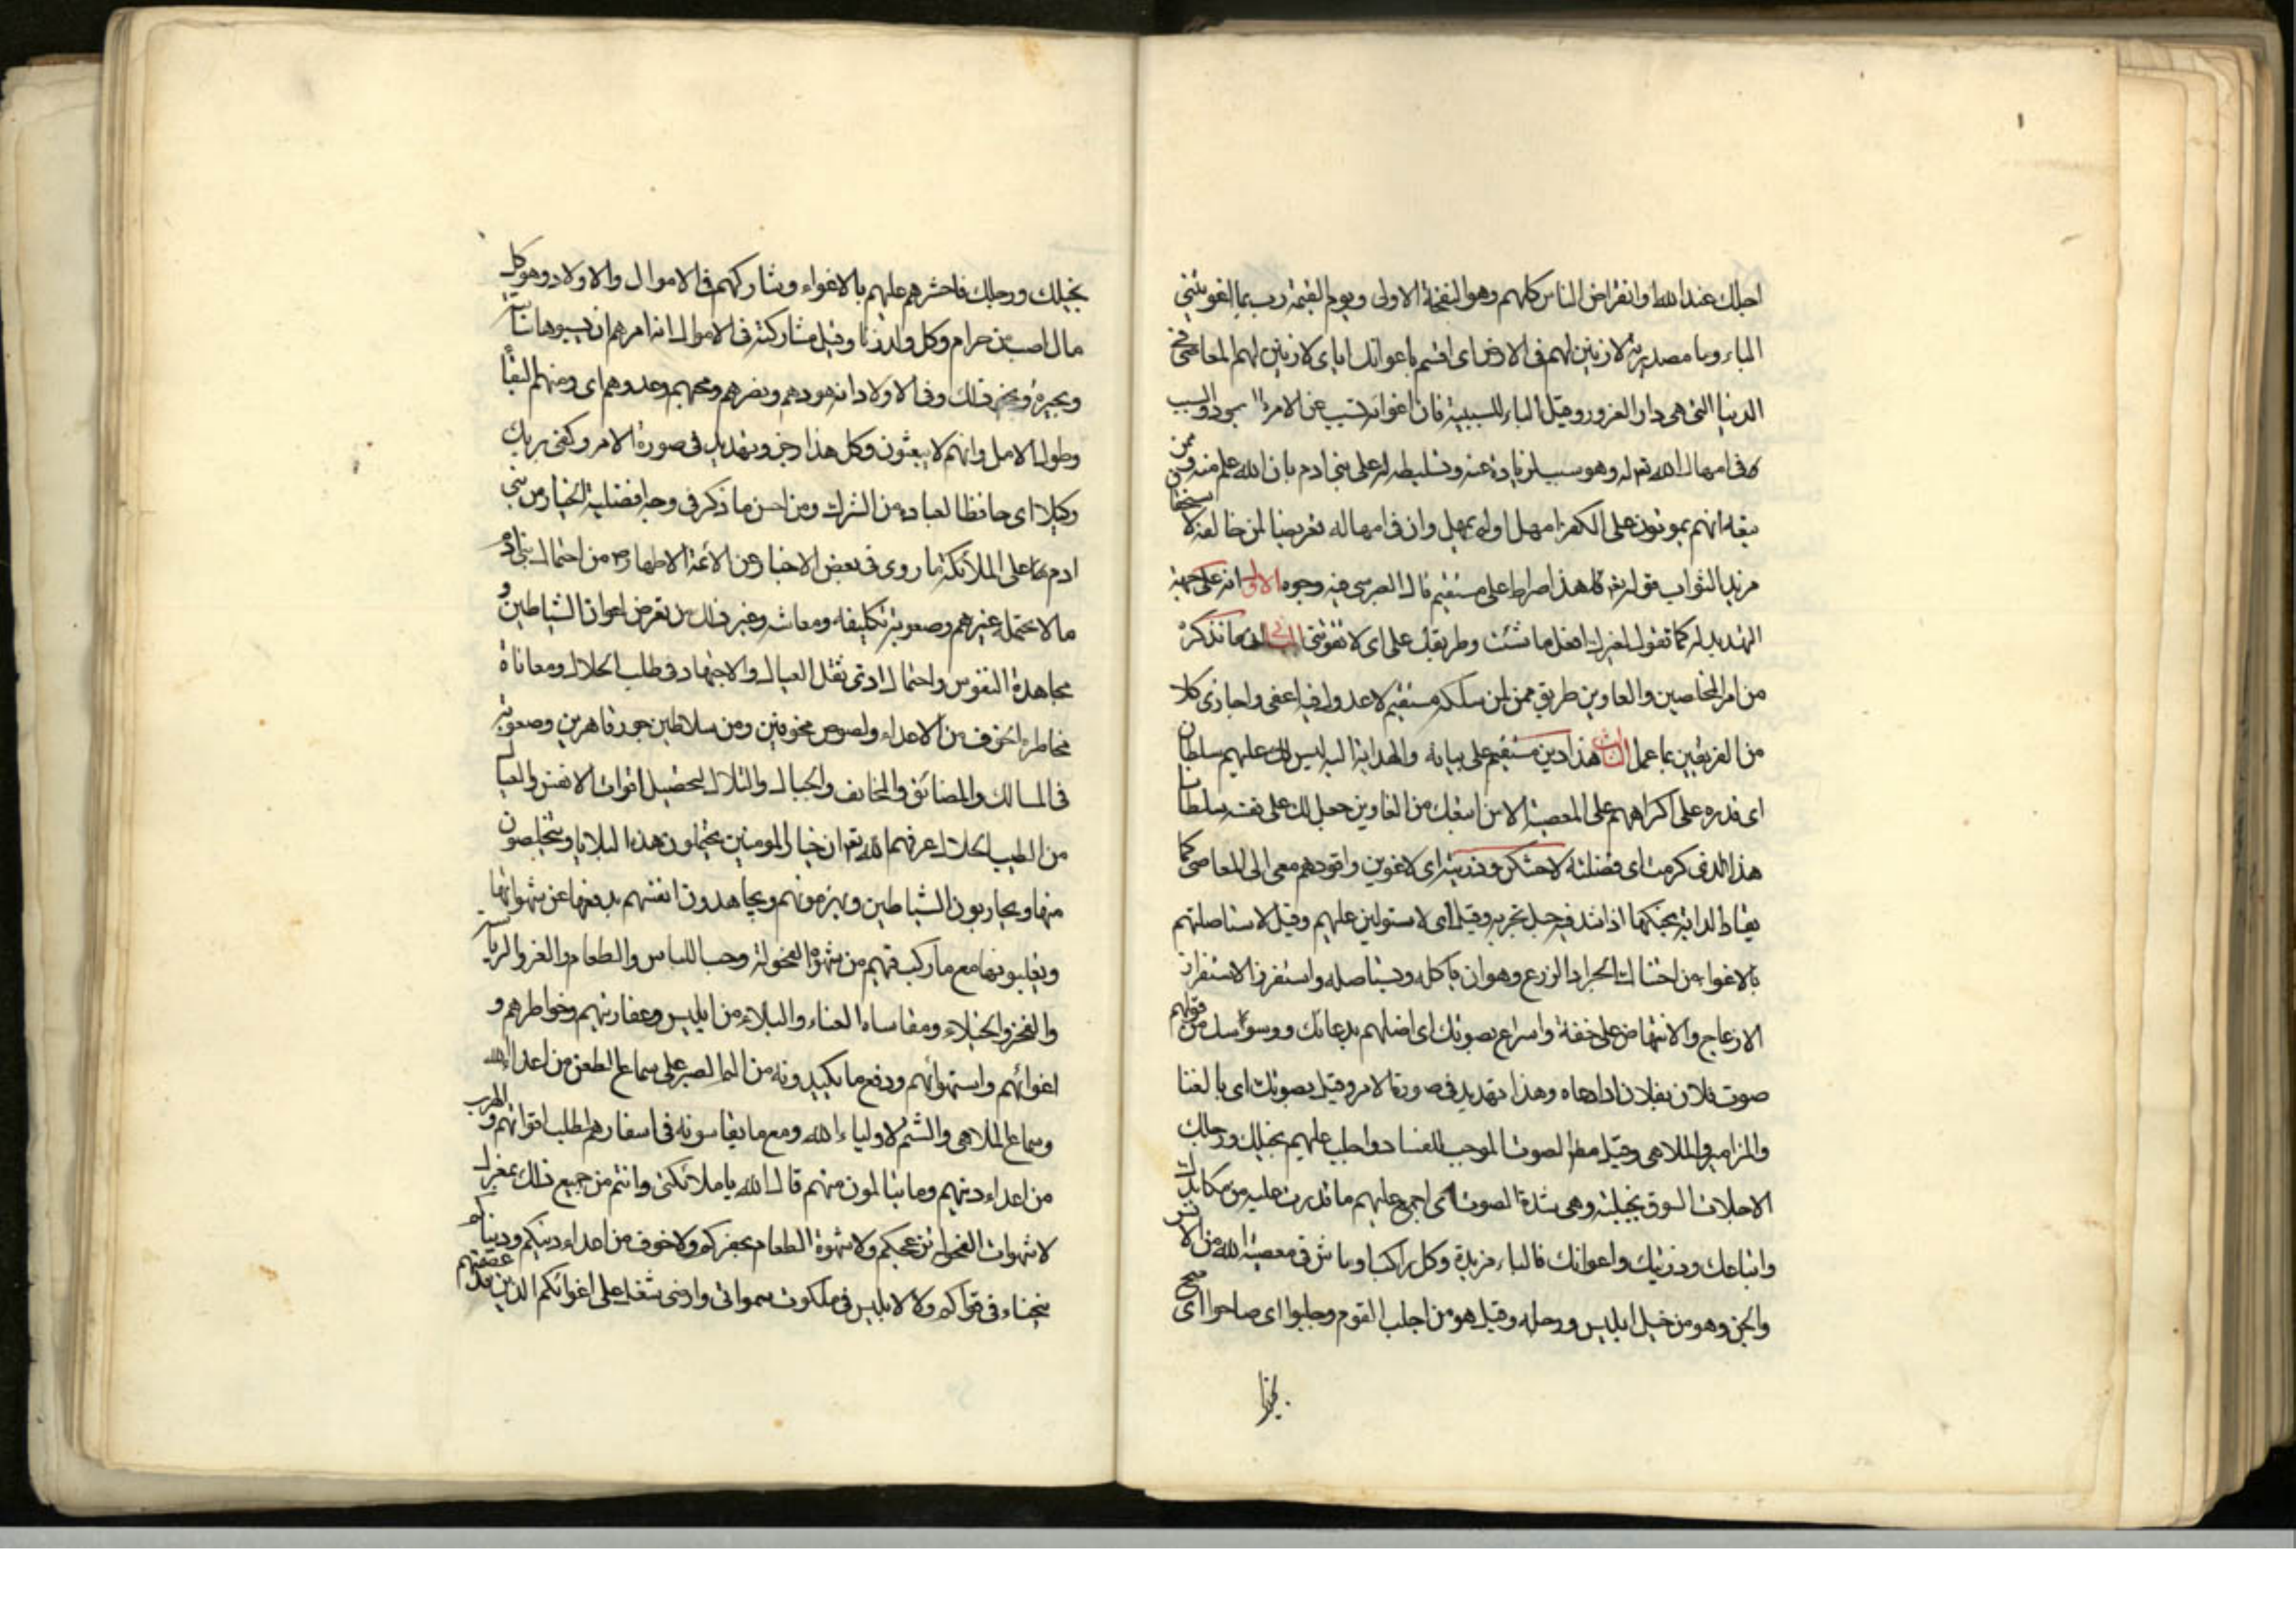 اجلك عند الله او انقراض الناس كلهم وهو النفخة الاولى ويوم القيمة رب بما اغويتني
الباء وما مصدرية لازينن لهم في الارض اى اقسم باغوائك اياى لازينن لهم المعاصى في
الدنيا التى هى دار الغرور وقيل الباء للسببية فان اغوائه تسبب عن الامر السجود والسبب
فى امهال الله تع له وهو سبب لزيادة عنه وتسليطه له على بنى ادم بان الله علم منه وممن
يتبعه انهم يموتون على الكفر امهل اولم يمهل وان فى امهاله تعريضا لمن خالفه لاستحقاق
مزيد الثواب قوله تع قال هذا صراط على مستقيم قال الطبرسى فيه وجوه الاول انه على جهة
التهديد له كما تقول لغيرك افعل ما شئت وطريقك على اى لا تفوتنى الثانى ان ما تذكره
من امر المخلصين والغاوين طريق ممن من سلكه مستقيم لا عدول فيه اعنى واجازى كلا
من الفريقين بما عمل الثالث هذا دين مستقيم على بيانه والهداية اليه ليس لك عليهم سلطان
اى قدرة على اكراههم على المعصية الا من اتبعك من الغاوين جعل لك على نفسه سلطانا
هذا الذى كرمت اى فضلته لاحتنكن ذريته اى لاغوين واقودهم معى الى المعاصى كما
يقاد الدابة بحنكها اذا شد فيه حبل تجر به وقيل اى لاستولين عليهم وقيل لاستاصلنهم
بالاغواء من احتناك الجراد الزرع وهو ان ياكله ويستاصله واستفزز الاستفزاز
الازعاج والانتهاض على خفة واسراع بصوتك اى اضلهم بدعائك ووسوستك من قولهم
صوت فلان بفلان اذا دعاه وهذا تهديد فى صورة الامر وقيل بصوتك اى بالغنا
والمزامير والملاهى وقيل مطلق الصوت الموجب للفساد واجلب عليهم بخيلك ورجلك
الاجلاب السوق بجلبة وهى شدة الصوت اى اجمع عليهم ما قدرت عليه من مكايدك
واتباعك وذريتك واعوانك فالباء مزيدة وكل راكب او ماش فى معصية الله من الانس
والجن وهو من خيل ابليس ورجله وقيل هو من اجلب القوم وجلبوا اى صاحوا اى صح
بخيلك
بخيلك ورجلك فاحشرهم عليهم بالاغواء وشاركهم فى الاموال والاولاد وهو كل
مال اصيب من حرام وكل ولد زنا وقيل مشاركته فى الاموال انه امرهم ان يسيبوها سائبة
وبحيرة ونحو ذلك وفى الاولاد انه هودهم ونصرهم ومجسهم وعدهم اى ومنهم البقاء
وطول الامل وانهم لا يبعثون وكل هذا زجر وتهديد فى صورة الامر وكفى بربك
وكيلا اى حافظا لعباده من الشرك ومن احسن ما ذكر فى وجه افضلية الخيار من بنى
ادم على الملائكة ما روى فى بعض الاخبار عن الائمة الاطهار من احتمال بنى ادم
ما لا يحتمله غيرهم وصعوبة تكليفه ومعاشه وغير ذلك من تعرض اعوان الشياطين و
مجاهدة النفوس واحتمال اذى ثقل العيال والاجتهاد فى طلب الحلال ومعاناة
مخاطرة الخوف من الاعداء ولصوص مخوفين ومن سلاطين جور قاهرين وصعوبة
فى المسالك والمضائق والمخاوف والجبال والتلال لتحصيل اقوات الانفس والعيال
من الطيب الحلال عرفهم الله تع ان خيار المومنين يحتملون هذه البلايا ويتخلصون
منها ويحاربون الشياطين ويهزمونهم ويجاهدون انفسهم بدفعها عن شهواتها
ويغلبونها مع ما ركب فيهم من شهوة الفحولة وحب اللباس والطعام والعز والرياسة
والفخر والخيلاء ومقاساة العناء والبلاء من ابليس وعفاريتهم وخواطرهم و
اغوائهم واستهوائهم ودفع ما يكيدونه من الم الصبر على سماع الطعن من اعداء الله
وسماع الملاهى والشتم لاولياء الله ومع ما يقاسونه فى اسفارهم لطلب اقواتهم والهرب
من اعداء دينهم وما يتالمون منهم قال الله يا ملائكتى وانتم من جميع ذلك بمعزل
لا شهوات الفحولة تزعجكم ولا شهوة الطعام يحفزكم ولا خوف من اعداء دينكم ودنياكم
ينخب فى قواكم ولا لابليس فى ملكوت سمواتى وارضى شغل على اغوائكم الذين قد عصمتهم